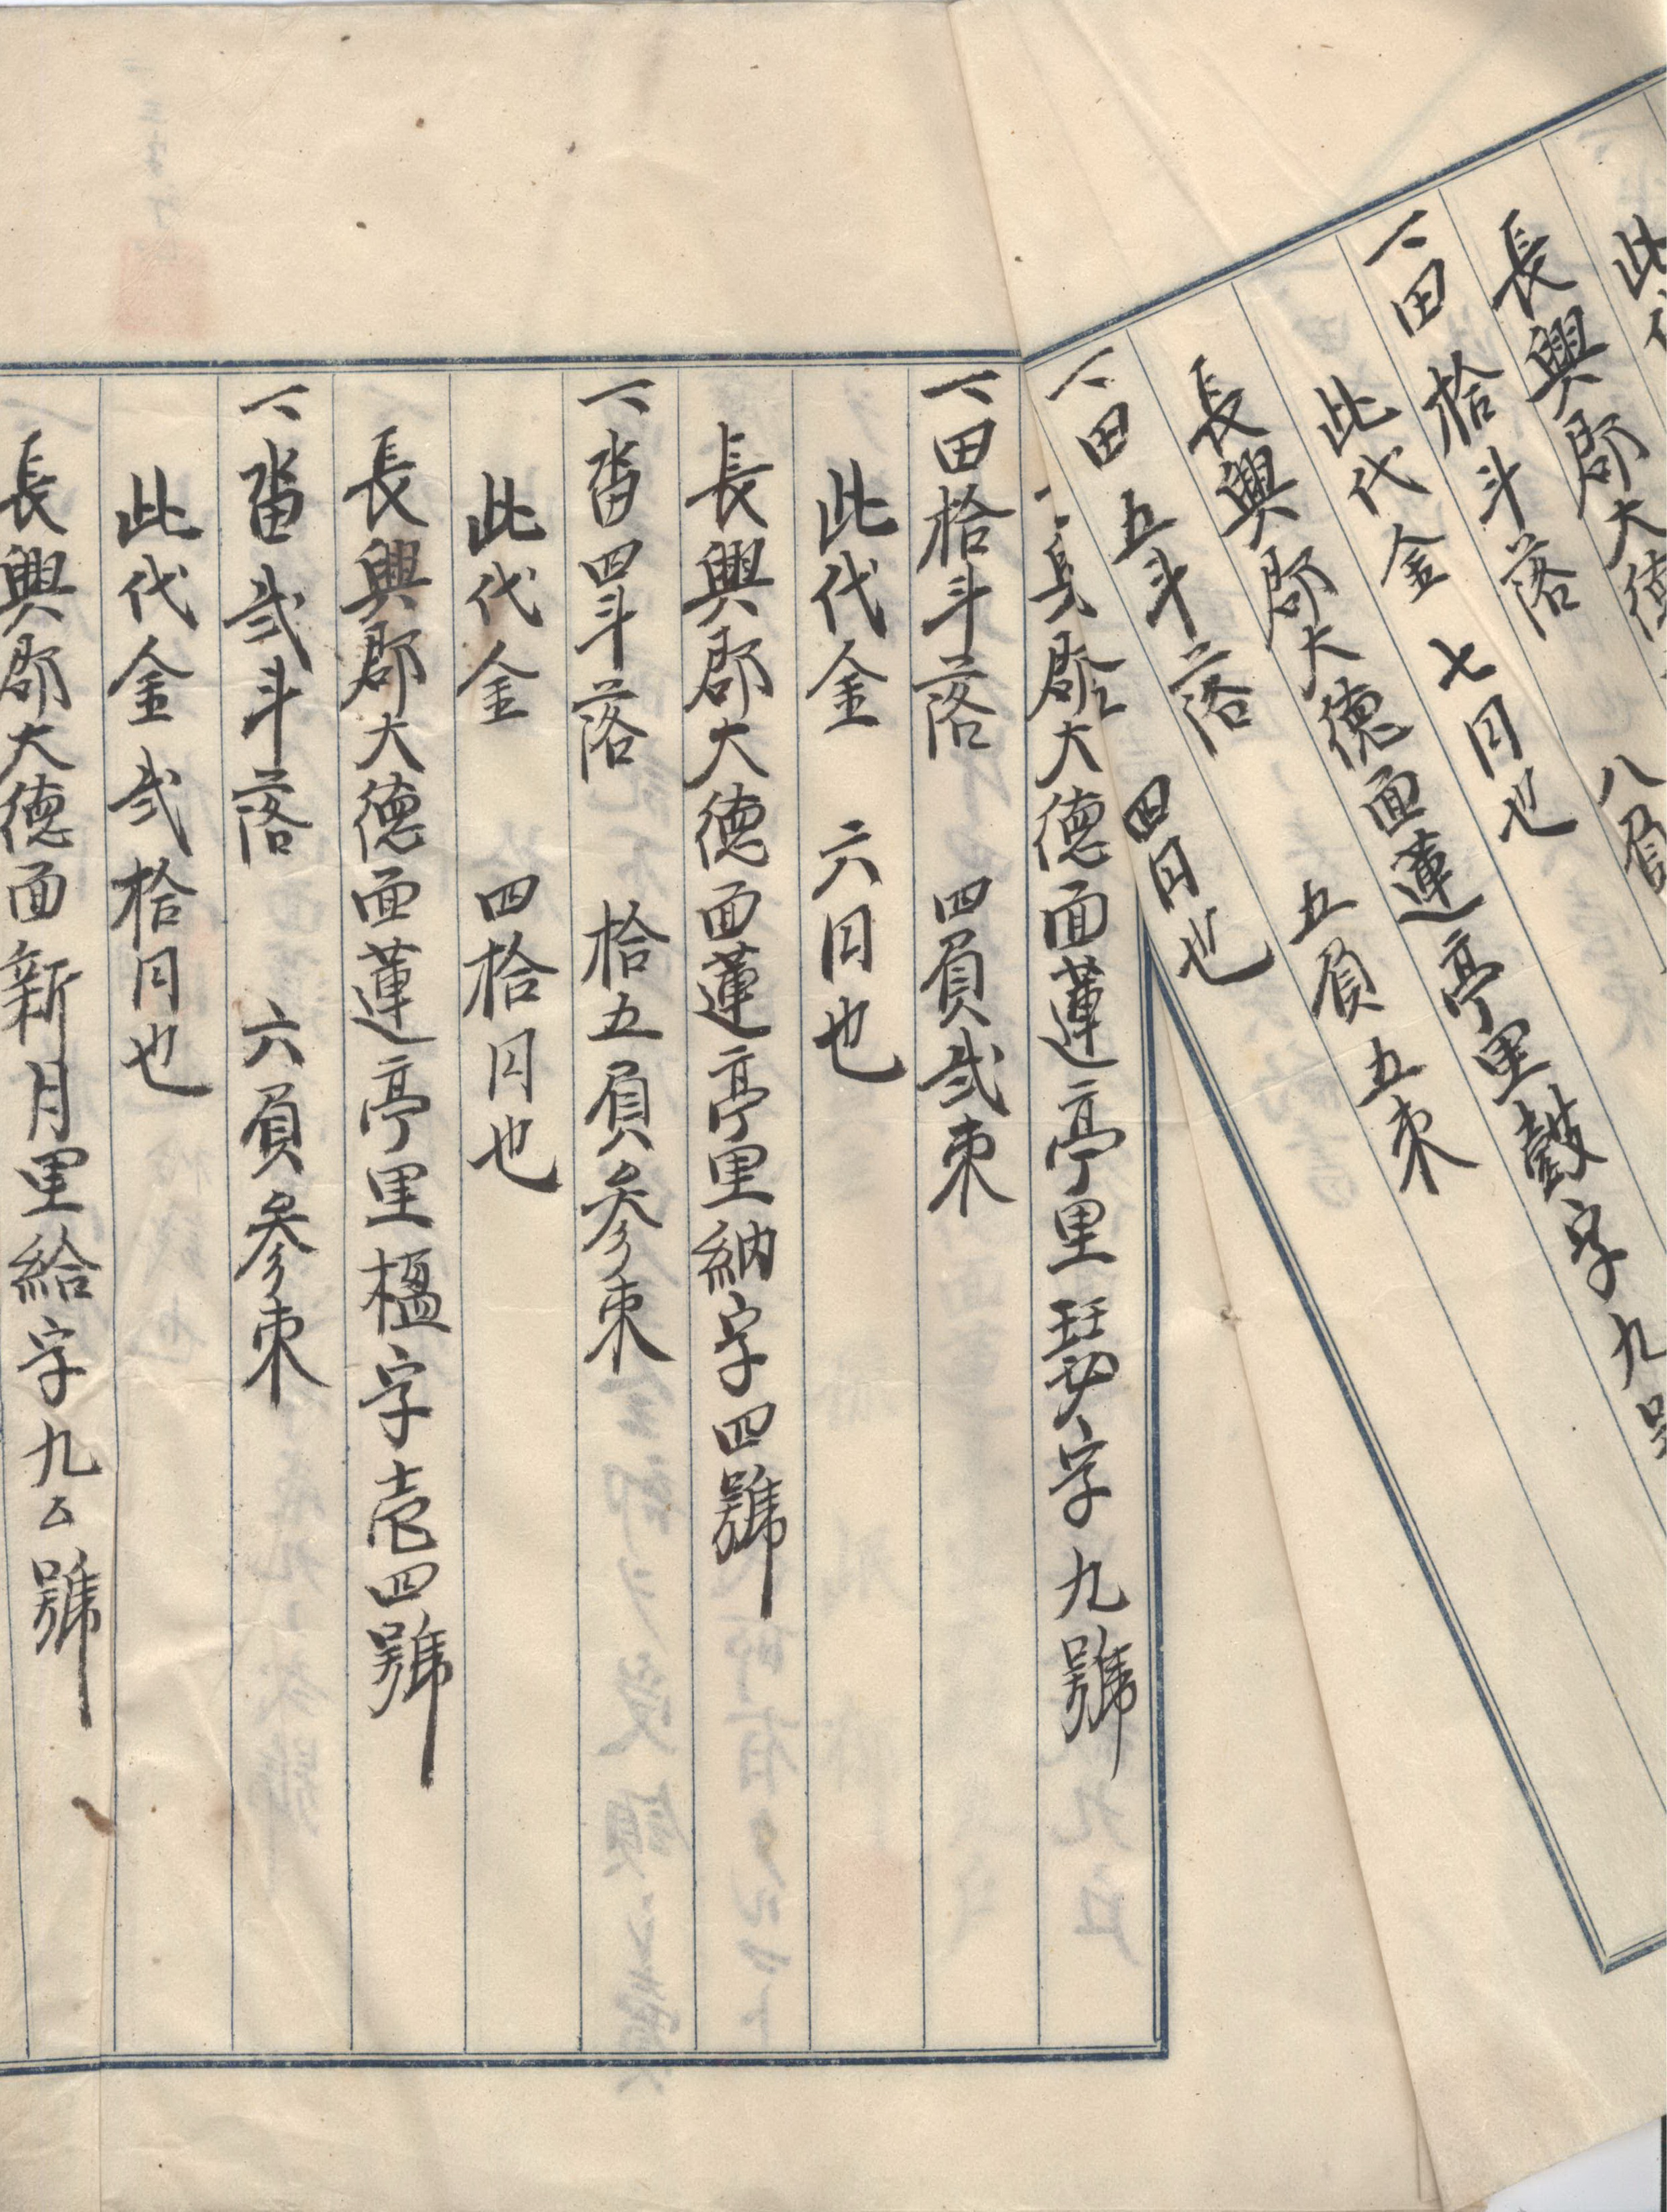 此代
長興郡大德
八負
一田拾斗落
此代金七円也
長興郡大德面蓮亭里鼓字九號
五負五束
一田五斗落
四円也
長興郡大德面蓮亭里瑟字九號
一田拾斗落 四負弍束
此代金 六円也
長興郡大德面蓮亭里納字四號
一畓四斗落 拾五負參束
此代金 四拾円也
長興郡大德面蓮亭里楹字壱四號
一畓弍斗落 六負參束
此代金弍拾円也
長興郡大德面新月里給字九五號